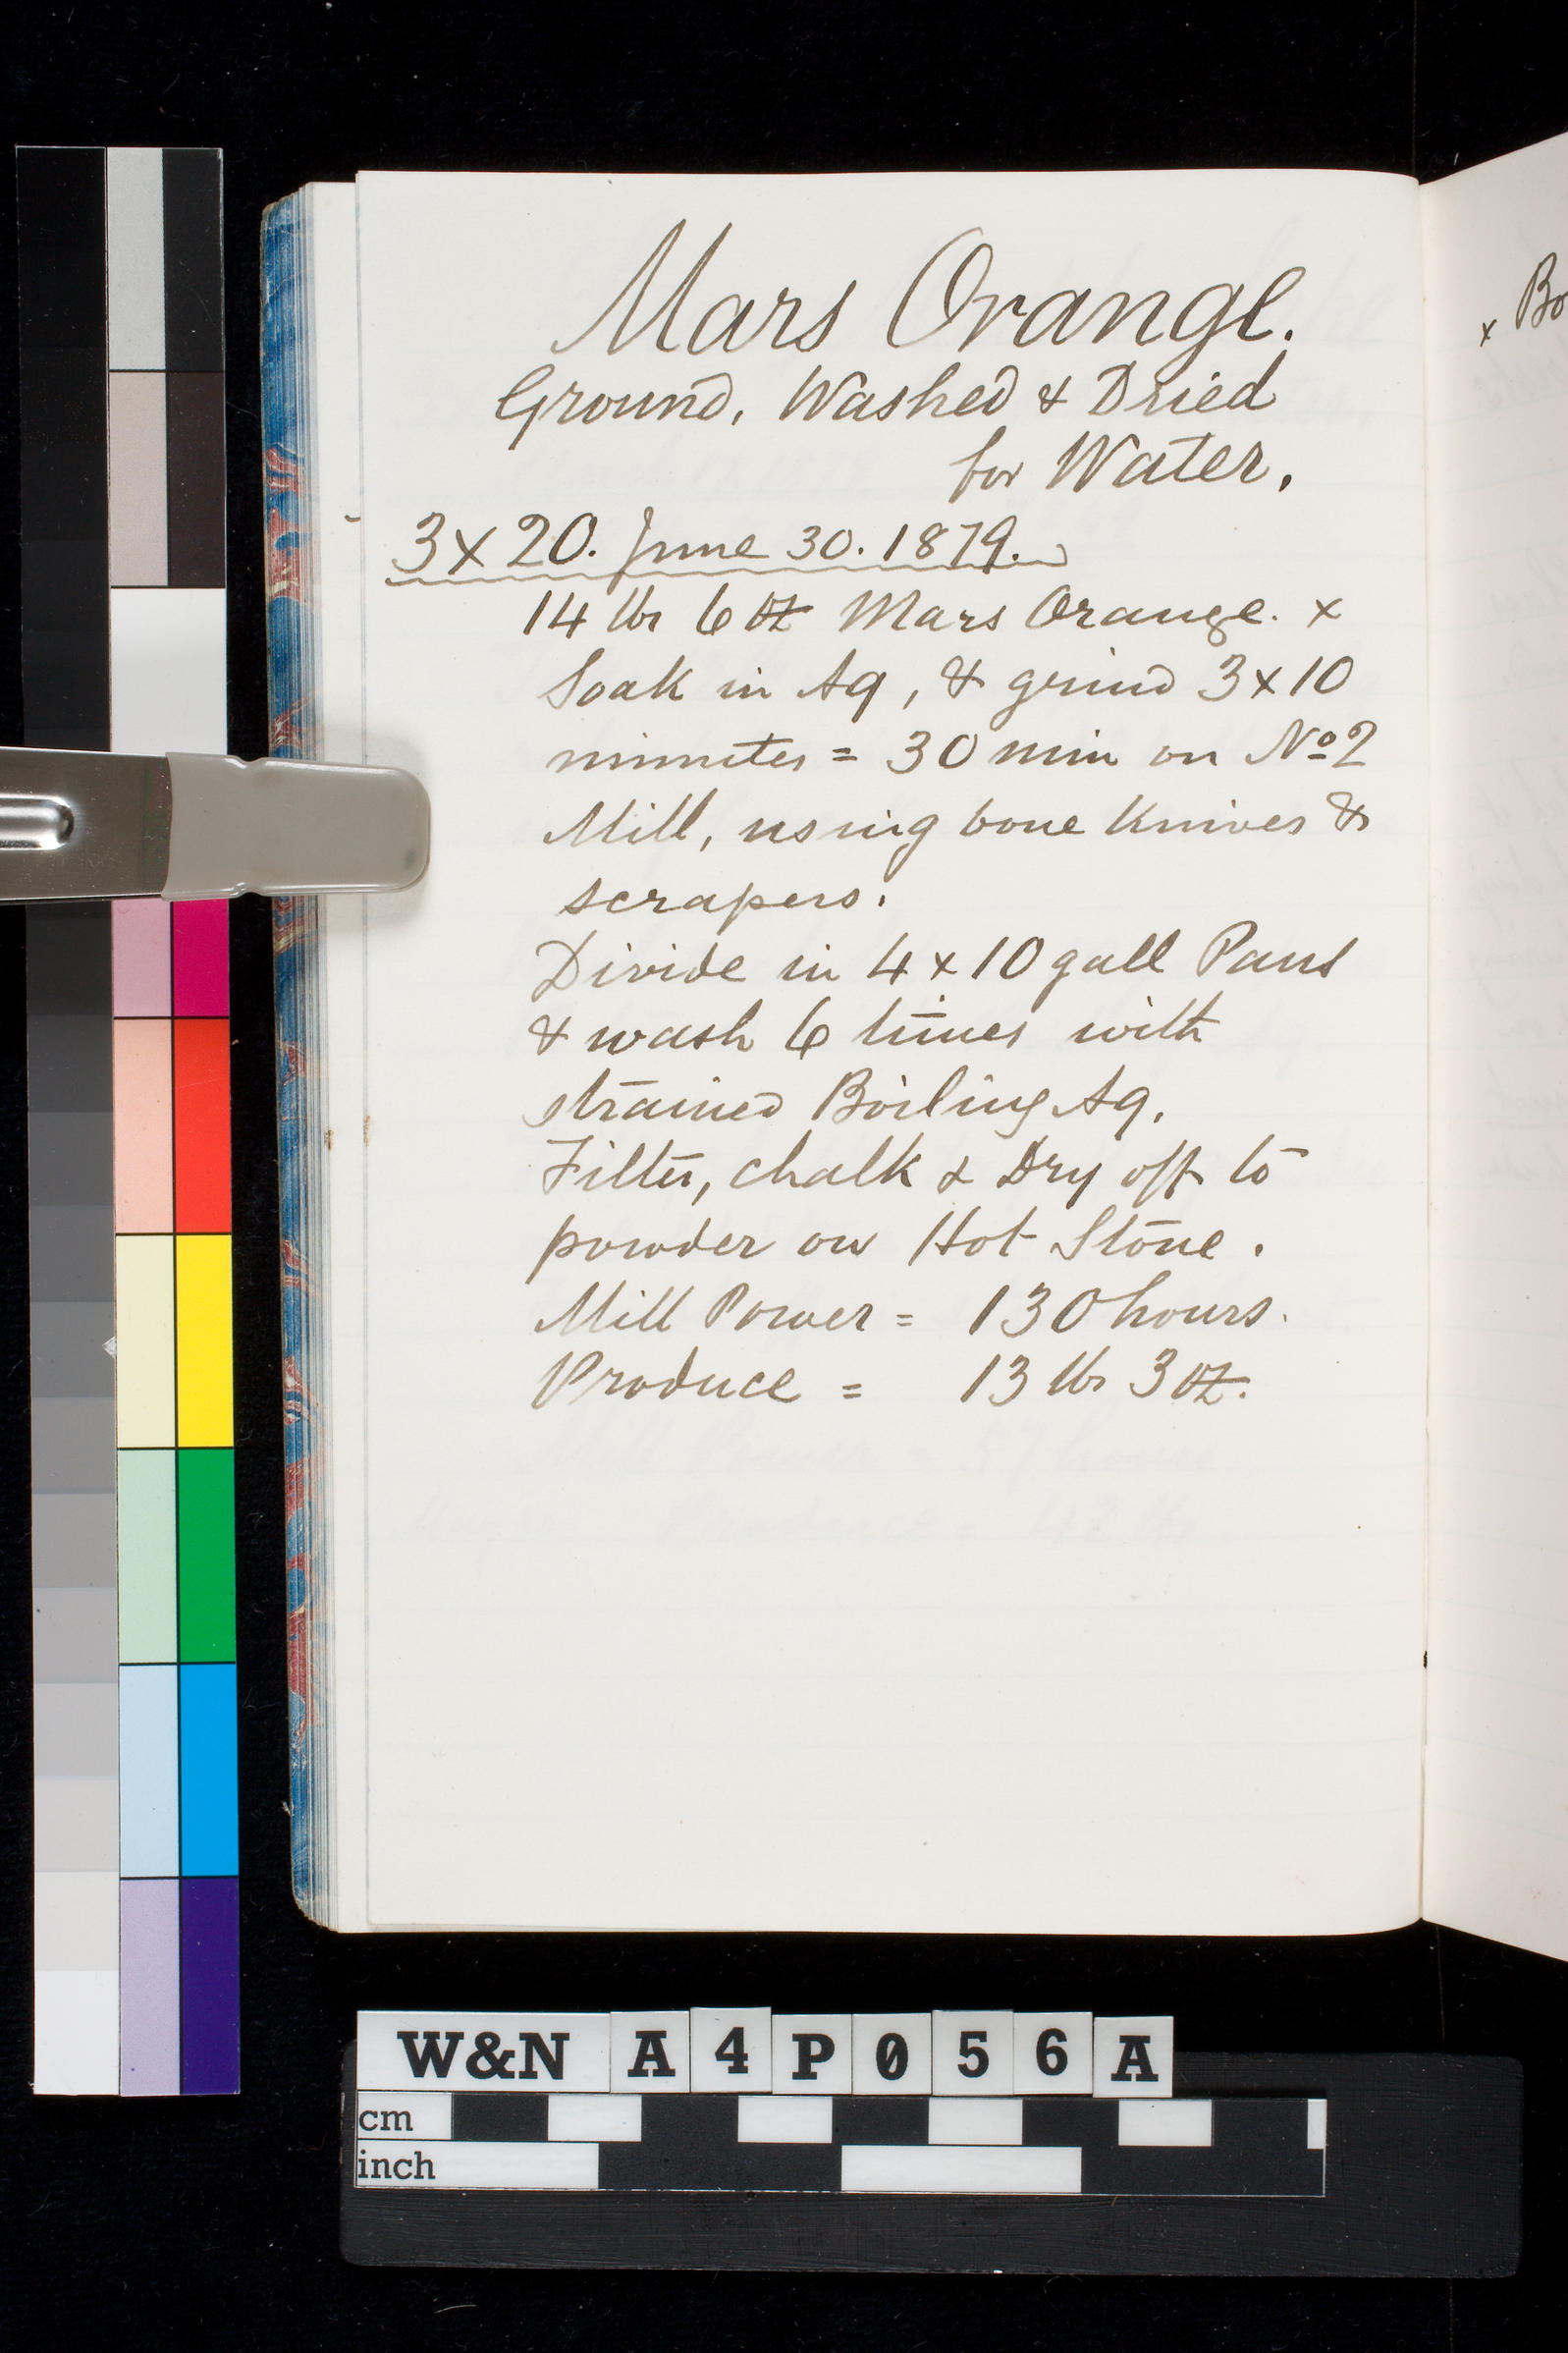 Mars Orange.
Ground, Washed & Dried
for Water.
3 x 20. June 30. 1879.
14 lbs 6 oz Mars Orange. x
Soak in Aq, & grind 3 x 10
minutes = 30 min on No 2
Mill, using bone Knives &
scrapers.
Divide in 4 x 10 gall Pans
& wash 6 times with
strained Boiling Aq.
Filter, chalk & Dry off to
powder on Hot Stone.
Mill Power = 130 hours.
Produce = 13 lbs 3 oz.
x Bo
W&N A4P056A
cm
inch